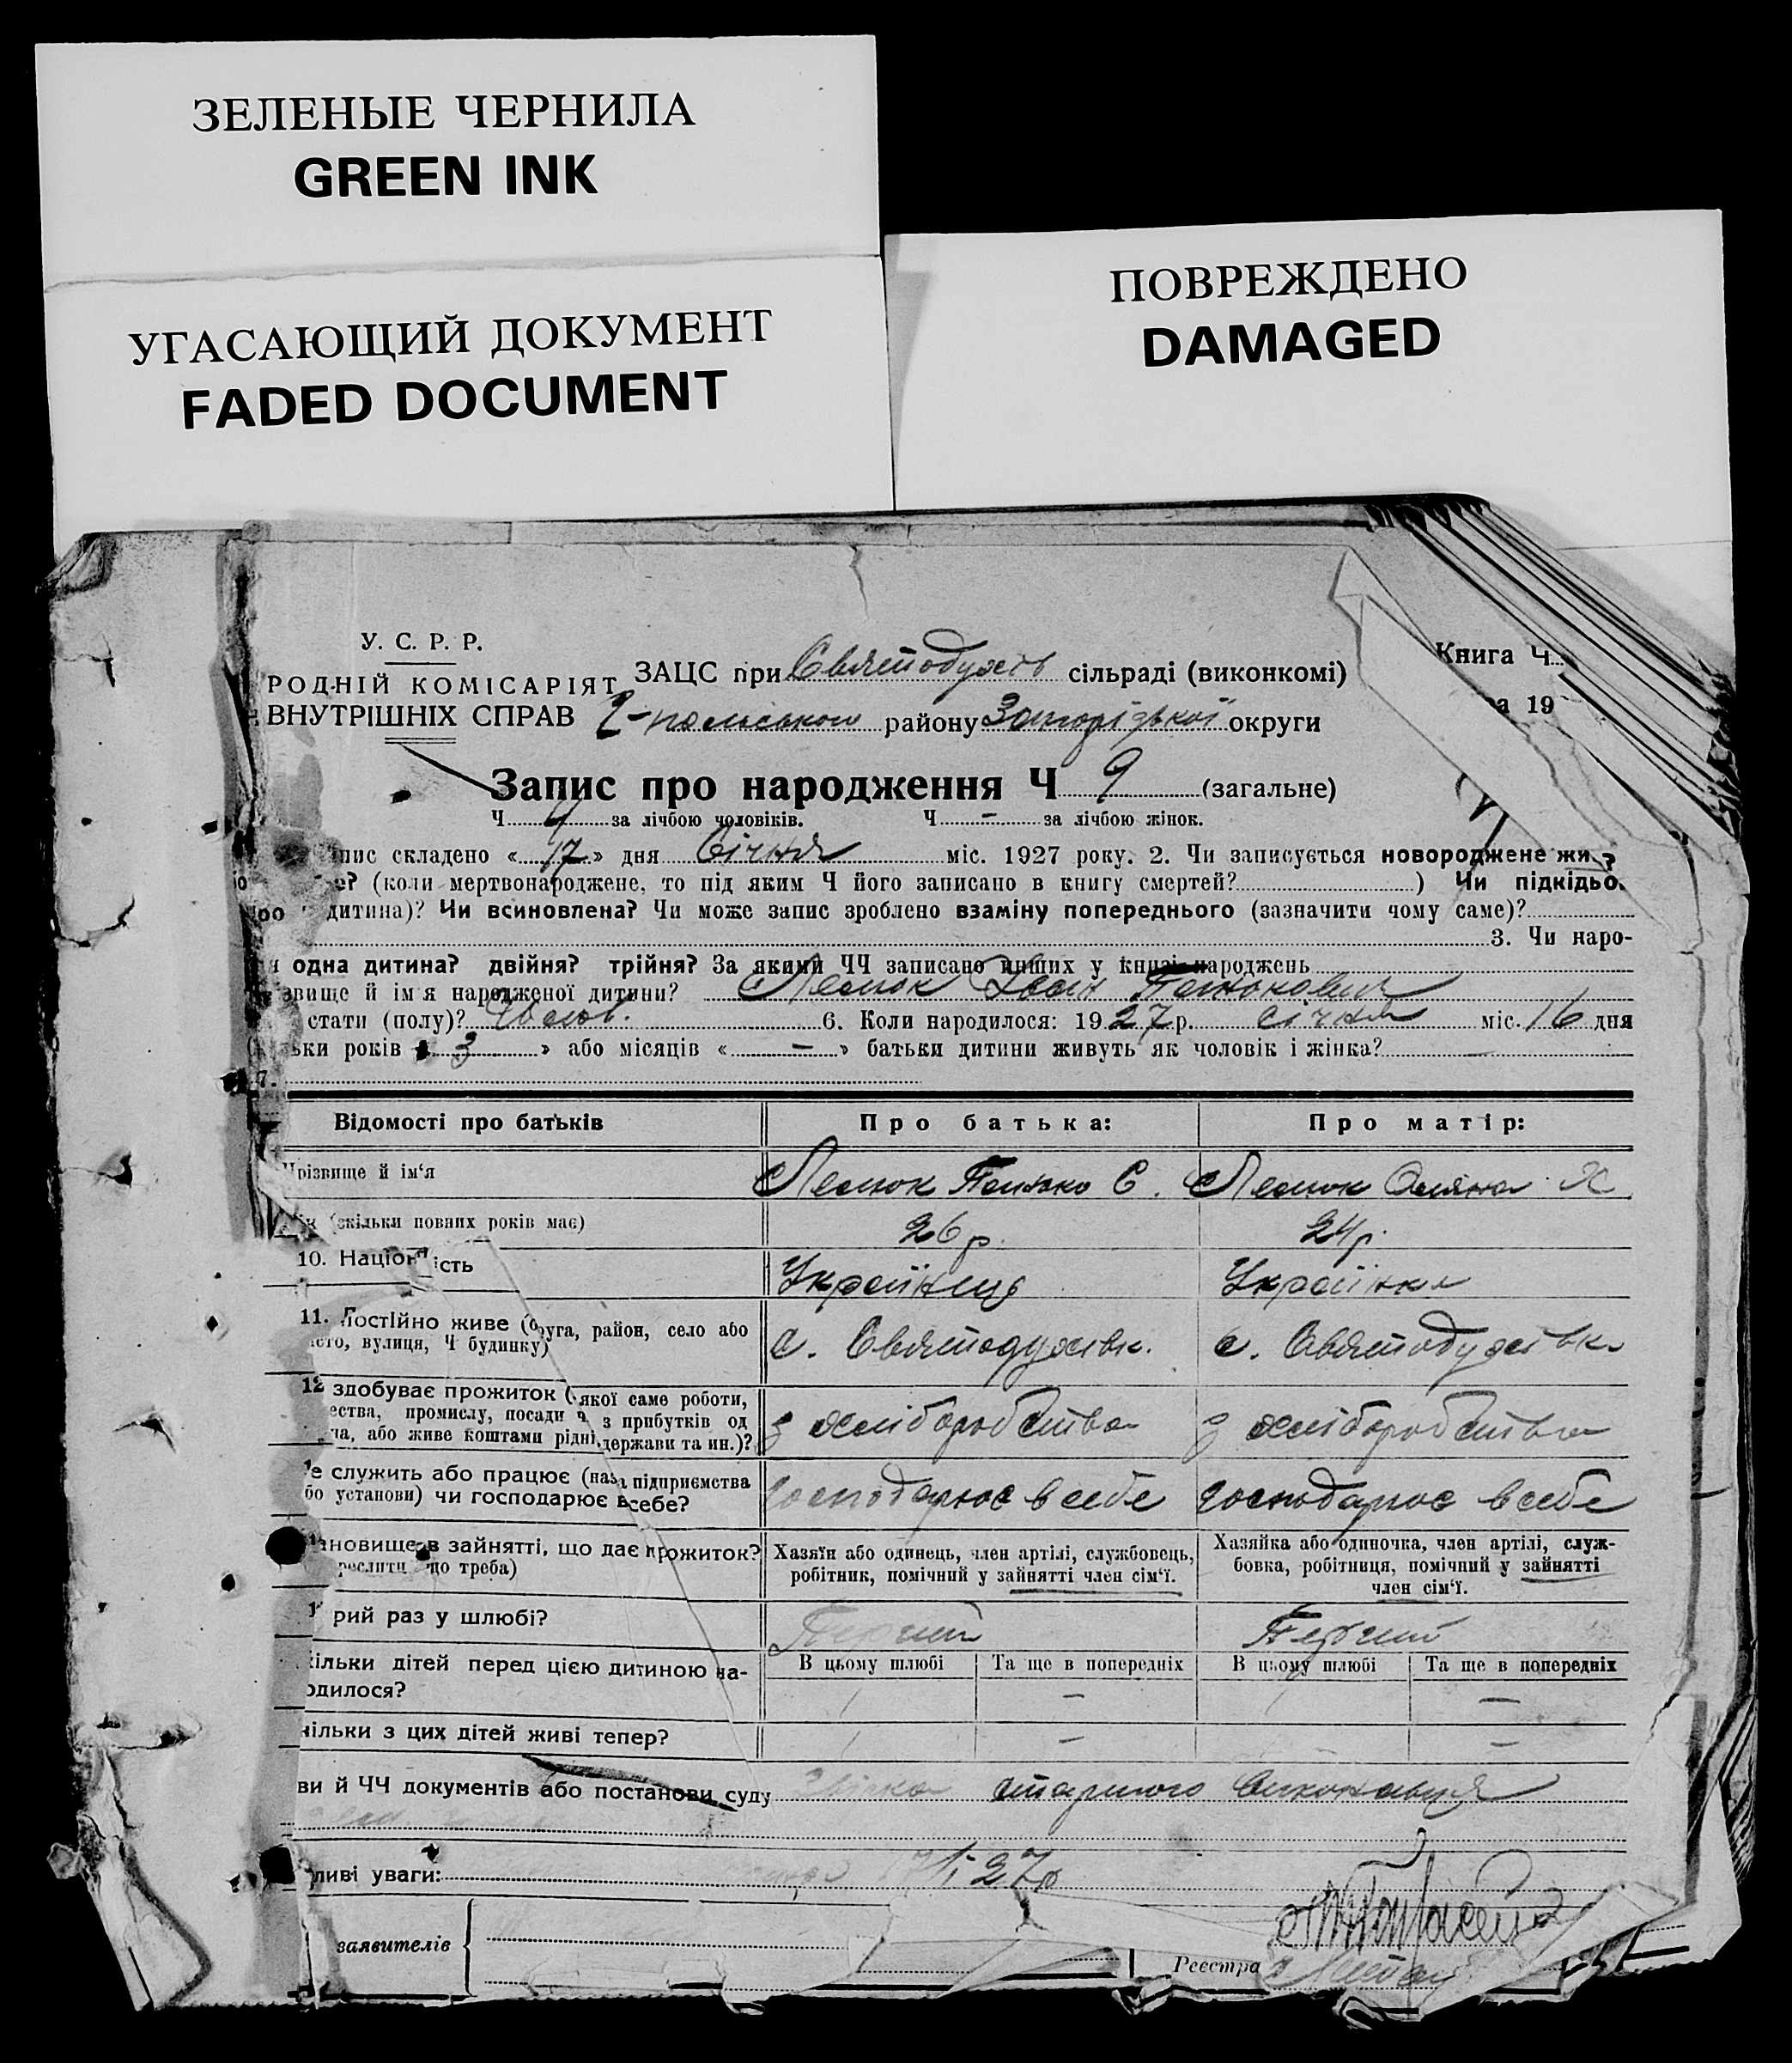 ЗЕЛЕНЫЕ ЧЕРНИЛА
GREEN INK
УГАСАЮЩИЙ ДОКУМЕНТ
FADED DOCUMENT
ПОВРЕЖДЕНО
DAMAGED
У. С. Р. Р.
РОДНІЙ КОМІСАРІЯТ
ВНУТРІШНІХ СПРАВ
ЗАЦС при Святодухів сільраді (виконкомі)
району Запорізької округи
Книга Ч.
а 19
Запис про народження Ч 9 (загальне)
Ч 4 за лічбою чоловіків. Ч — за лічбою жінок.
пис складено « 17 » дня Січня міс. 1927 року. 2. Чи записується новороджене жи ?
е? (коли мертвонароджене, то під яким Ч його записано в книгу смертей? ) Чи підкідьо
дитина)? Чи всиновлена? Чи може запис зроблено взаміну попереднього (зазначити чому саме)?
3. Чи наро-
я одна дитина? двійня? трійня? За якими ЧЧ записано инших у книзі народжень
звище й ім'я народженої дитини? Іван
стати (полу)? Чолов. 6. Коли народилося: 1927 р. січня міс. 16 дня
ьки років « 3 » або місяців « — » батьки дитини живуть як чоловік і жінка? —
7.
Відомості про батьків Про батька: Про матір:
різвище й ім'я
ік (скільки повних років має) 26 р. 24 р.
10. Націон ість Українець Українка
11. Постійно живе (округа, район, село або
істо, вулиця, Ч будинку) с. Святодухівк. с. Святодухівк.
12 здобуває прожиток ( якої саме роботи,
ества, промислу, посади ч з прибутків од
на, або живе коштами рідні, держави та ин.)? з хліборобства з хліборобства
е служить або працює (назва підприємства
бо установи) чи господарює в себе? господарює в себе господарює в себе
ановище в зайнятті, що дає прожиток?
реслити що треба)
Хазяїн або одинець, член артілі, службовець,
робітник, помічний у зайнятті член сім'ї.
Хазяйка або одиночка, член артілі, служ-
бовка, робітниця, помічний у зайнятті
член сім'ї.
рий раз у шлюбі? Перший Перший
кільки дітей перед цією дитиною на-
родилося?
В цьому шлюбі Та ще в попередніх В цьому шлюбі Та ще в попередніх
1 — 1 —
кільки з цих дітей живі тепер? 1 — —
ви й ЧЧ документів або постанови суду старшого виконавця
ливі уваги: 27р
заявителів
Реєстра